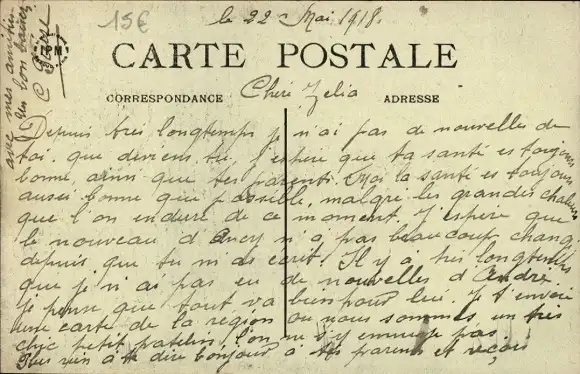 15€
le 22 Mai 1918.
CARTE POSTALE
CORRESPONDANCE
Chère Zelia
ADRESSE
Depuis tres longtemps je n'ai pas de nouvelles de
toi, que deviens tu, j'espere que ta santé est toujours
bonne, ainsi que tes parents. Moi la santé est toujours
aussi bonne que possible, malgré les grandes chaleurs
que l'on endure de ce moment. J'espere que
le nouveau d'Ancy n'a pas beaucoup changé
depuis que tu m'as écrit. Il y a très longtemps
que je n'ai pas eu de nouvelles d'André.
je pense que tout va bien pour lui. Je t'envoie
une carte de la region ou nous sommes, un très
chic petit patelin, l'on ne s'y ennuie pas.
Plus rien à te dire bonjour à tes parents et reçois
avec mes amitiés
un bon baiser